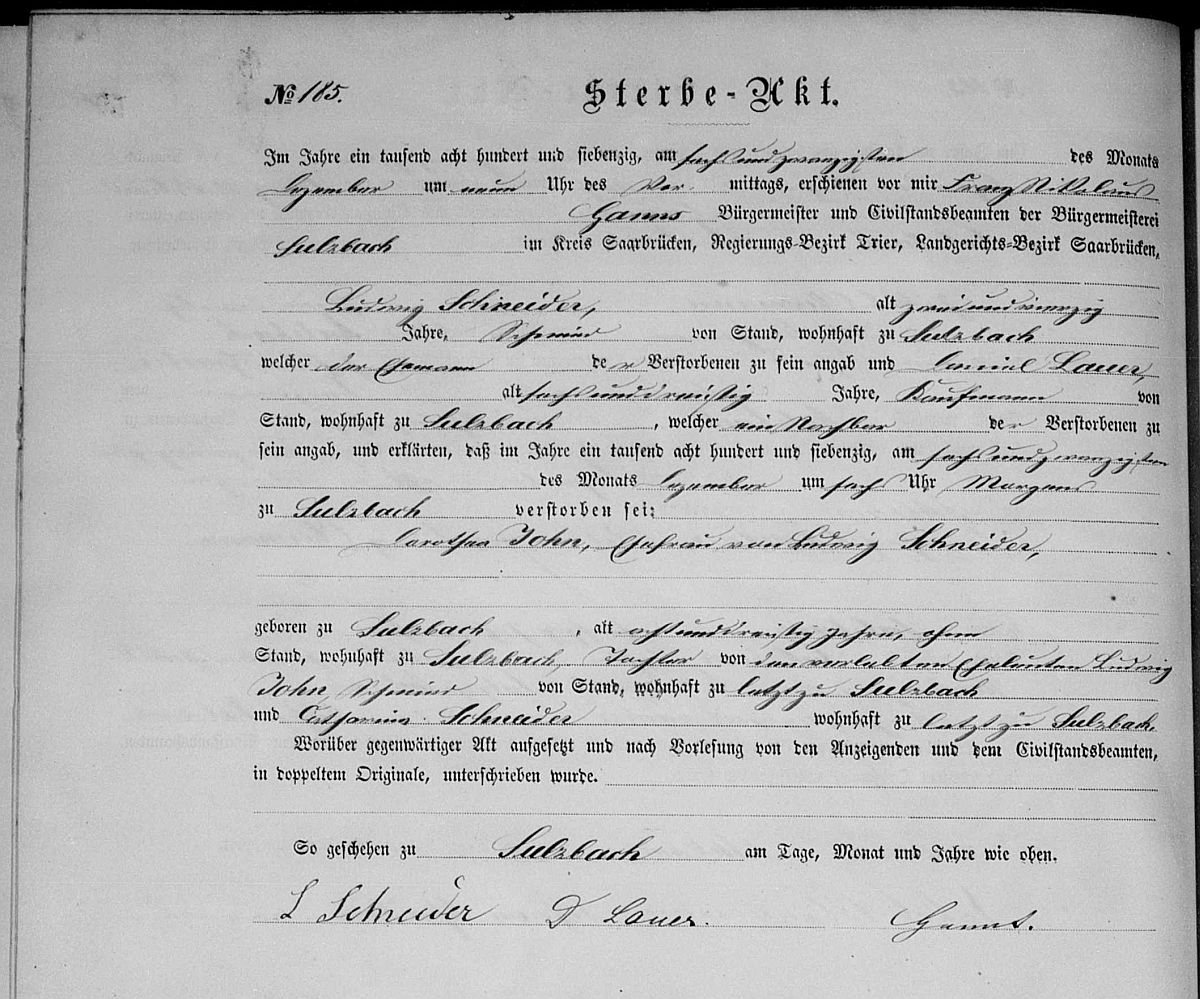 № 185. Sterbe-Akt.
Im Jahre ein tausend acht hundert und siebenzig, am sechsundzwanzigsten des Monats
Dezember um neun Uhr des Vor. mittags, erschienen vor mir Franz Nikolaus
Bürgermeister und Civilstandsbeamten der Bürgermeisterei
Sulzbach im Kreis Saarbrücken, Regierungs-Bezirk Trier, Landgerichts-Bezirk Saarbrücken,
Ludwig Schneider, alt zweiundvierzig
Jahre, Schmied von Stand, wohnhaft zu Sulzbach
welcher der Ehemann der Verstorbenen zu sein angab und Daniel Lauer,
alt sechsunddreißig Jahre, Kaufmann von
Stand, wohnhaft zu Sulzbach, welcher ein Nachbar der Verstorbenen zu
sein angab, und erklärten, daß im Jahre ein tausend acht hundert und siebenzig, am sechsundzwanzigsten
des Monats Dezember um sechs Uhr Morgens
zu Sulzbach verstorben sei:
Dorothea John, Ehefrau von Ludwig Schneider,
geboren zu Sulzbach, alt achtunddreißig Jahre, ohne
Stand, wohnhaft zu Sulzbach, Tochter von den verlebten Eheleuten Ludwig
John Schmied von Stand, wohnhaft zu letzt zu Sulzbach
und Catharina Schneider wohnhaft zu letzt zu Sulzbach.
Worüber gegenwärtiger Akt aufgesetzt und nach Vorlesung von den Anzeigenden und dem Civilstandsbeamten,
in doppeltem Originale, unterschrieben wurde.
So geschehen zu Sulzbach am Tage, Monat und Jahre wie oben.
L Schneider D Lauer.